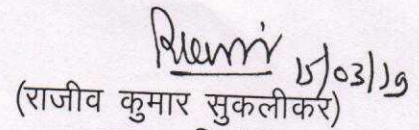 15/03/19
(राजीव कुमार सुकलीकर)